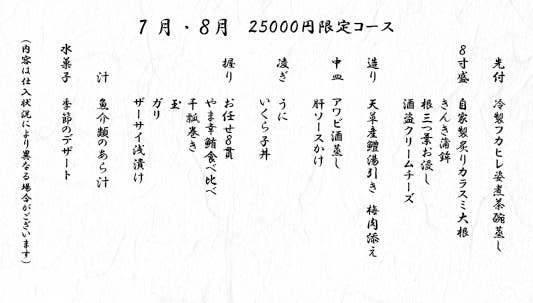 7月・8月 25000円限定コース
先付 冷製フカヒレ姿煮茶碗蒸し
8寸盛 自家製炙りカラスミ大根
きんき蒲鉾
根三つ葉お浸し
酒盗クリームチーズ
造り 天草産鱧湯引き 梅肉添え
中皿 アワビ酒蒸し
肝ソースかけ
凌ぎ うに
いくら子丼
握り お任せ8貫
やま幸鮪食べ比べ
干瓢巻き
玉
ガリ
ザーサイ浅漬け
汁 魚介類のあら汁
水菓子 季節のデザート
(内容は仕入状況により異なる場合がございます)